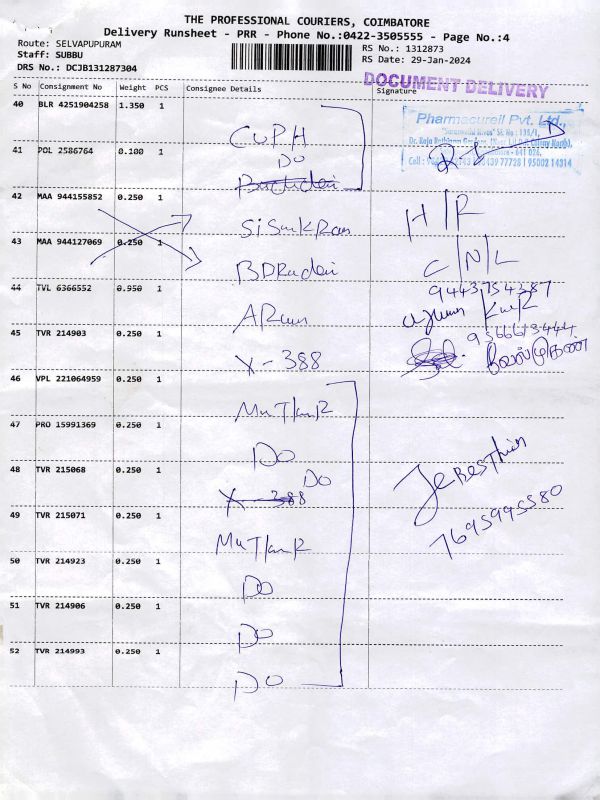 THE PROFESSIONAL COURIERS, COIMBATORE
Delivery Runsheet - PRR - Phone No.:0422-3505555 - Page No.:4
Route: SELVAPUPURAM
RS No.: 1312873
Staff: SUBBU
RS Date: 29-Jan-2024
DRS No.: DCJB131287304
DOCUMENT DELIVERY
S No Consignment No Weight PCS Consignee Details Signature
40 BLR 4251904258 1.350 1
Pharmacureil Pvt. Ltd.,
CUPH
41 POL 2586764 0.100 1
DO
42 MAA 944155852 0.250 1
H/R
43 MAA 944127069 0.250 1
C/N/L
44 TVL 6366552 0.950 1
9443754387
A Ram
45 TVR 214903 0.250 1
9366613444
X-388
46 VPL 221064959 0.250 1
47 PRO 15991369 0.250 1
DO
48 TVR 215068 0.250 1
DO
X-388
7695995580
49 TVR 215071 0.250 1
50 TVR 214923 0.250 1
DO
51 TVR 214906 0.250 1
DO
52 TVR 214993 0.250 1
DO